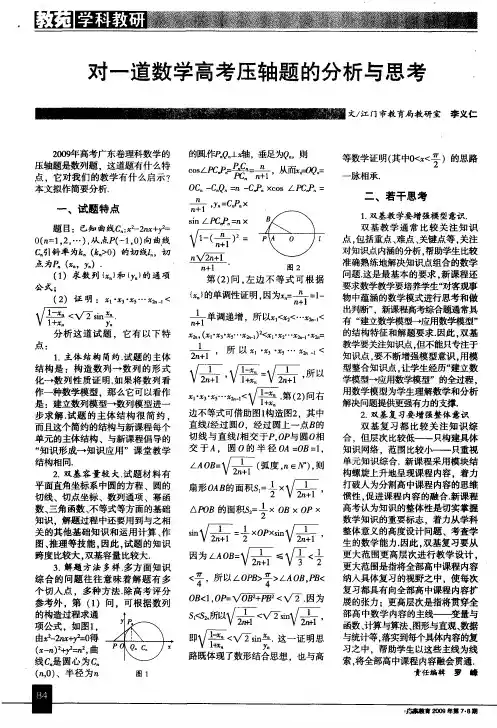 教苑 学科教研
对一道数学高考压轴题的分析与思考
文/江门市教育局教研室 李义仁
2009年高考广东卷理科数学的
压轴题是数列题，这道题有什么特
点，它对我们的教学有什么启示？
本文拟作简要分析.
一、试题特点
题目：已知曲线Cₙ:x²-2nx+y²=
0(n=1,2,…).从点P(-1,0)向曲线
Cₙ引斜率为kₙ (kₙ>0) 的切线lₙ，切
点为Pₙ (xₙ，yₙ) .
(1) 求数列{xₙ}和{yₙ}的通项
公式；
(2) 证明：x₁·x₃·x₅…x₂ₙ₋₁<
√((1-xₙ)/(1+xₙ))<√2 sin(xₙ/yₙ).
分析这道试题，它有以下特
点：
1. 主体结构简约.试题的主体
结构是：构造数列→数列的形式
化→数列性质证明.如果将数列看
作一种数学模型，那么它可以看作
是：建立数列模型→数列模型进一
步求解.试题的主体结构很简约，
而且这个简约的结构与新课程每个
单元的主体结构、与新课程倡导的
“知识形成→知识应用”课堂教学
结构相同.
2. 双基容量较大.试题材料有
平面直角坐标系中圆的方程、圆的
切线、切点坐标、数列通项、幂函
数、三角函数、不等式等方面的基础
知识，解题过程中还要用到与之相
关的其他基础知识和运算计算、作
图、推理等技能，因此，试题的知识
跨度比较大，双基容量比较大.
3. 解题方法多样.多方面知识
综合的问题往往意味着解题有多
个切入点，多种方法.除高考评分
参考外，第 (1) 问，可根据数列
的构造过程求通
项公式，如图1，
由x²-2nx+y²=0得
(x-n)²+y²=n²，曲
线Cₙ是圆心为Cₙ
(n,0)、半径为n
y
Pₙ
P O Qₙ Cₙ x
图 1
的圆.作PₙQₙ⊥x轴，垂足为Qₙ，则
cos∠PCₙPₙ=PₙCₙ/PCₙ=n/(n+1)，从而xₙ=OQₙ=
OCₙ -CₙQₙ =n -CₙPₙ ×cos ∠PCₙPₙ =
n/(n+1)，yₙ=CₙPₙ×
sin ∠PCₙPₙ =n ×
√(1-(n/(n+1))²) =
n√(2n+1)/(n+1).
B
P A O l
图 2
第(2)问，左边不等式可根据
{xₙ}的单调性证明，因为xₙ=n/(n+1)=1-
1/(n+1)单调递增，所以x₁<x₂<…<x₂ₙ₋₁<
x₂ₙ，(x₁·x₃·x₅…x₂ₙ₋₁)²<x₁·x₂…x₂ₙ₋₁·x₂ₙ=
1/(2n+1)，所以x₁·x₃·x₅…x₂ₙ₋₁<
√(1/(2n+1))，√((1-xₙ)/(1+xₙ))=√(1/(2n+1))，所以
x₁·x₃·x₅…x₂ₙ₋₁<√((1-xₙ)/(1+xₙ)).第(2)问右
边不等式可借助图1构造图2，其中
直线l经过圆O，经过圆上一点B的
切线与直线l相交于P，OP与圆O相
交于A，圆O的半径OA=OB=1，
∠AOB=√(1/(2n+1)) (弧度，n∈N*)，则
扇形OAB的面积S₁=1/2×√(1/(2n+1))，
△POB 的面积S₂=1/2 × OB × OP ×
sin√(1/(2n+1))=1/2×OP×sin√(1/(2n+1))，
因为∠AOB=√(1/(2n+1))≤√(1/3)<1/2
<π/4，所以∠OPB>π/4>∠AOB，PB<
OB<1，OP=√(OB²+PB²)<√2 .因为
S₁<S₂，所以√(1/(2n+1))<√2 sin√(1/(2n+1))，
即√((1-xₙ)/(1+xₙ))<√2 sin(xₙ/yₙ). 这一证明思
路既体现了数形结合思想，也与高
等数学证明(其中0<x<π/4) 的思路
一脉相承.
二、若干思考
1. 双基教学要增强模型意识.
双基教学通常比较关注知识
点，包括重点、难点、关键点等，关注
对知识点内涵的分析，帮助学生比较
准确熟练地解决知识点组合的数学
问题.这是最基本的要求，新课程还
要求数学教学要培养学生“对客观事
物中蕴涵的数学模式进行思考和做
出判断”，新课程高考综合题通常具
有“建立数学模型→应用数学模型”
的结构特征和解题要求.因此，双基
教学要关注知识点，但不能只专注于
知识点.要不断增强模型意识，用模
型整合知识点，让学生经历“建立数
学模型→应用数学模型”的全过程，
用数学模型为学生理解数学和分析
解决问题提供更强有力的支撑.
2. 双基复习要增强整体意识
双基复习都比较关注知识综
合，但层次比较低——只构建具体
知识网络，范围比较小——只重视
单元知识综合. 新课程采用模块结
构螺旋上升地呈现课程内容，着力
打破人为分割高中课程内容的思维
惯性，促进课程内容的融合.新课程
高考认为知识的整体性是切实掌握
数学知识的重要标志，着力从学科
整体意义的高度设计问题，考查学
生的数学能力.因此，双基复习要从
更大范围更高层次进行教学设计，
更大范围是指将全部高中课程内容
纳入具体复习的视野之中，使每次
复习都具有向全部高中课程内容扩
展的张力；更高层次是指将贯穿全
部高中数学内容的主线——变量与
函数、计算与算法、图形与直观、数据
与统计等，落实到每个具体内容的复
习之中，帮助学生以这些主线为线
索，将全部高中课程内容融会贯通.
责任编辑 罗 峰
84
广东教育 2009 年第 7·8 期